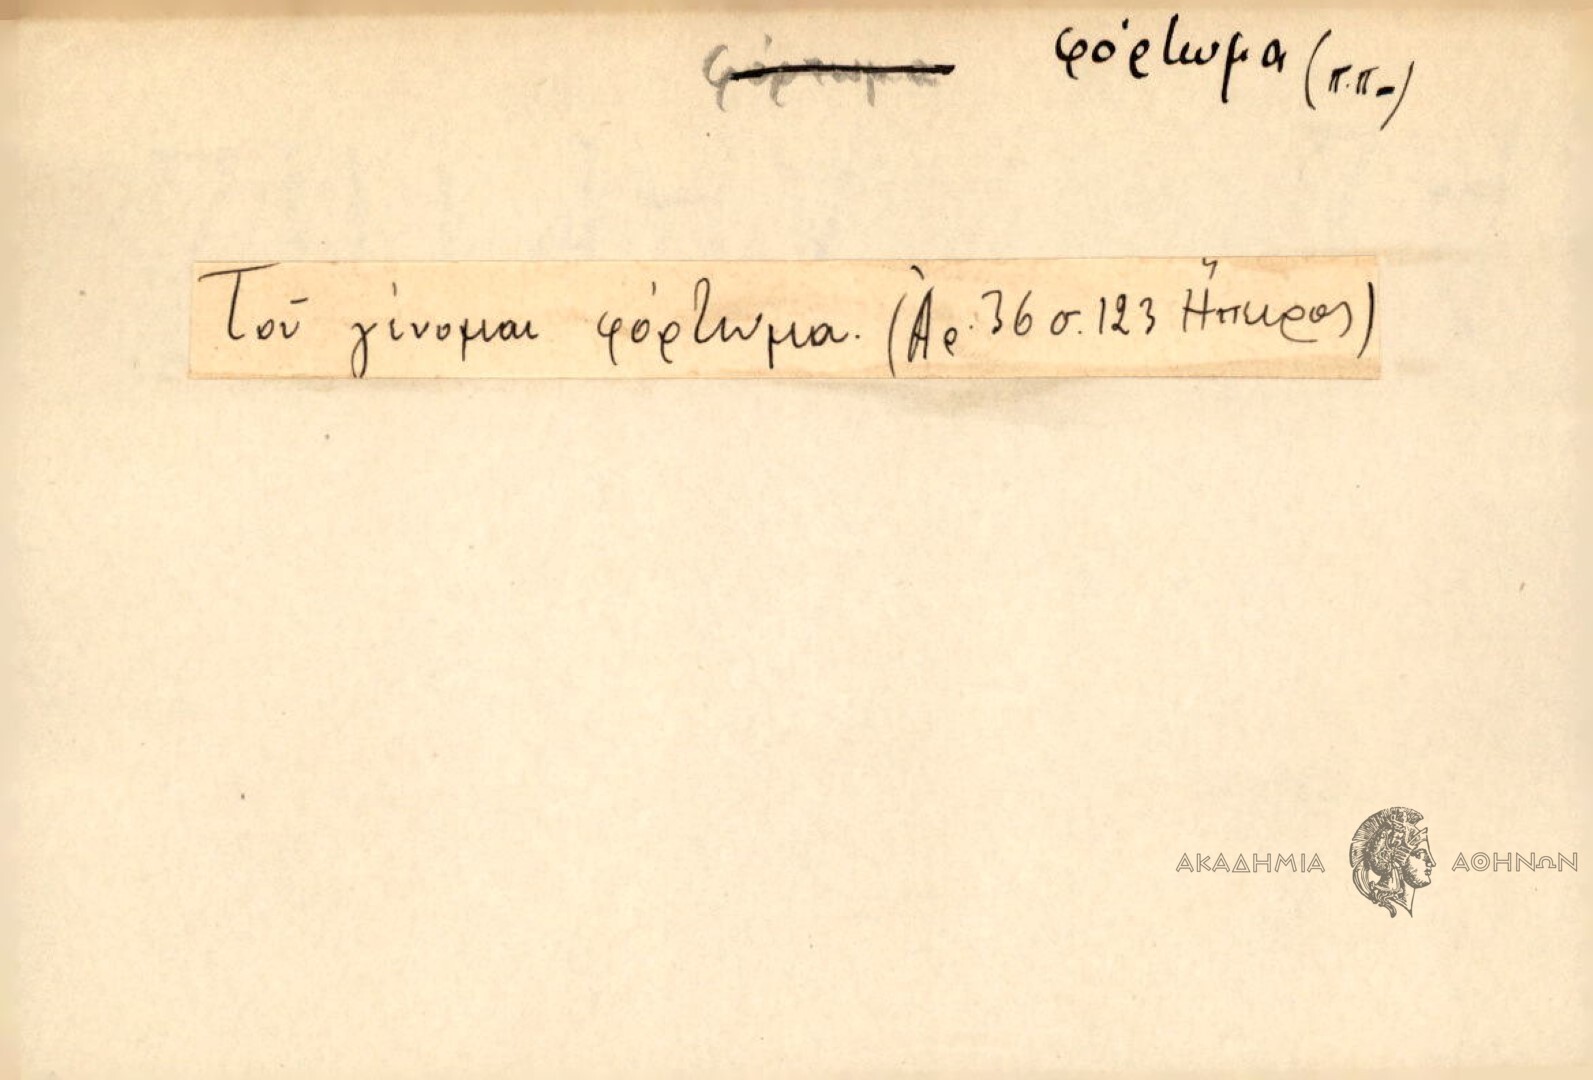 φόρτωμα φόρτωμα (π.π.-)
Τοῦ γίνομαι φόρτωμα. (Ἀρ. 36 σ. 123 Ἤπειρος)
ΑΚΑΔΗΜΙΑ ΑΘΗΝΩΝ